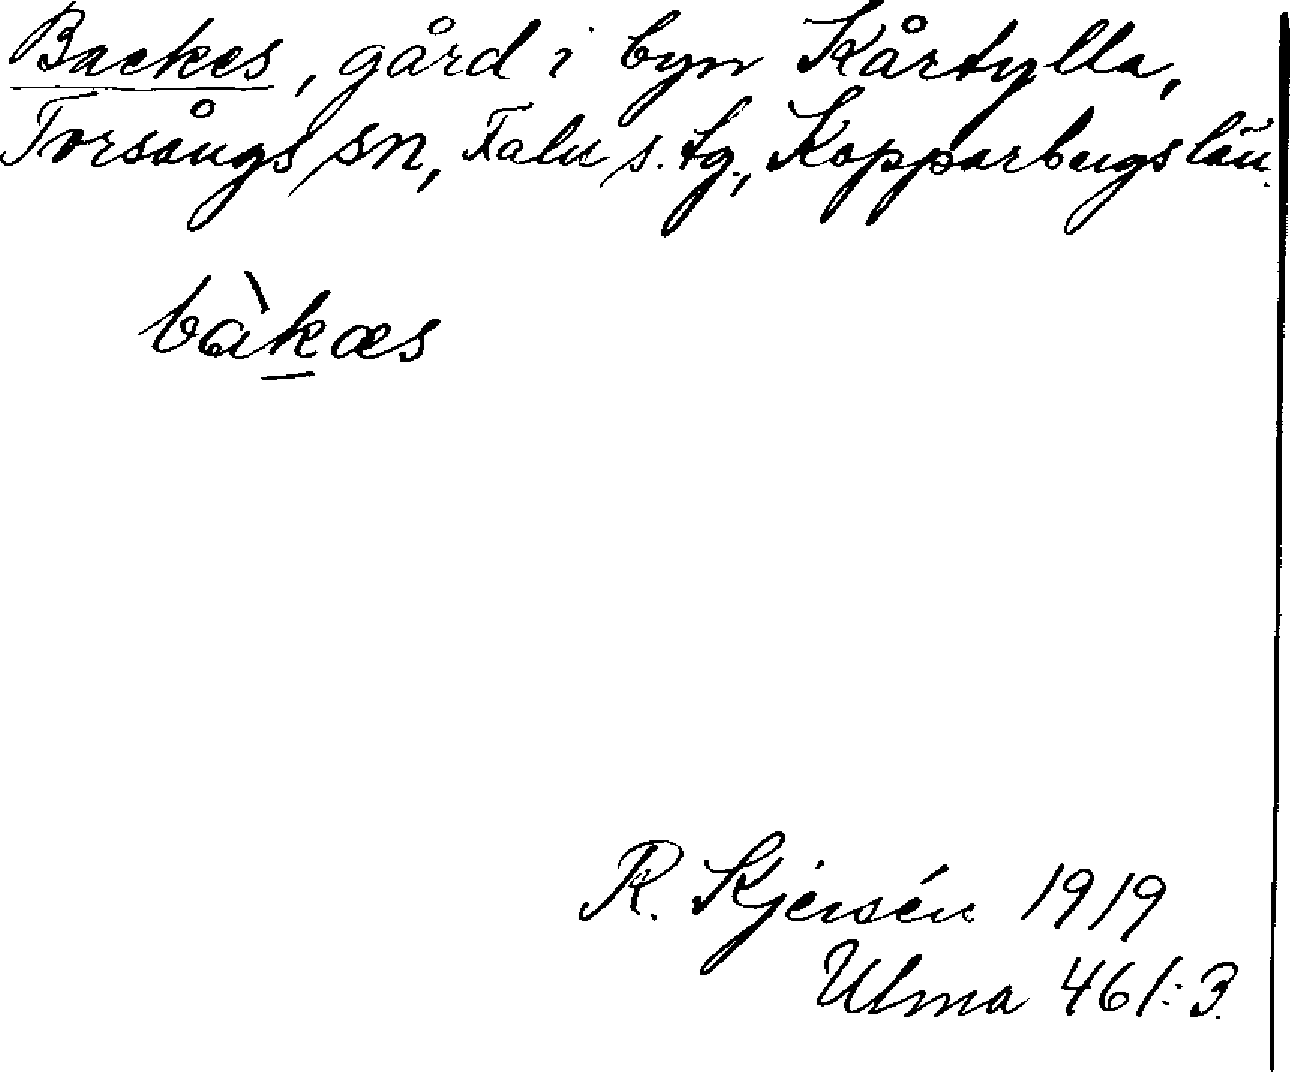 Backes, gård i byn Kårtylla,
Torsångs sn, Falu s. tg., Kopparbergs län.
bàkæs
R. Kjersén 1919
Ulma 461:3.